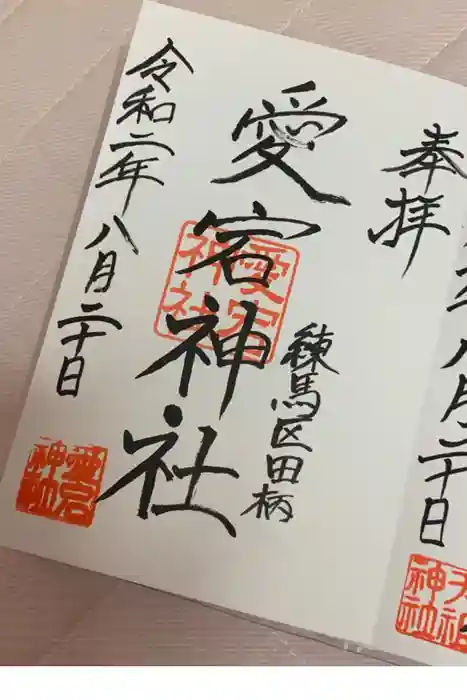 年八月二十日
天祖
神社
奉拝
練馬区田柄
愛宕神社
愛宕
神社
令和二年八月二十日
神社